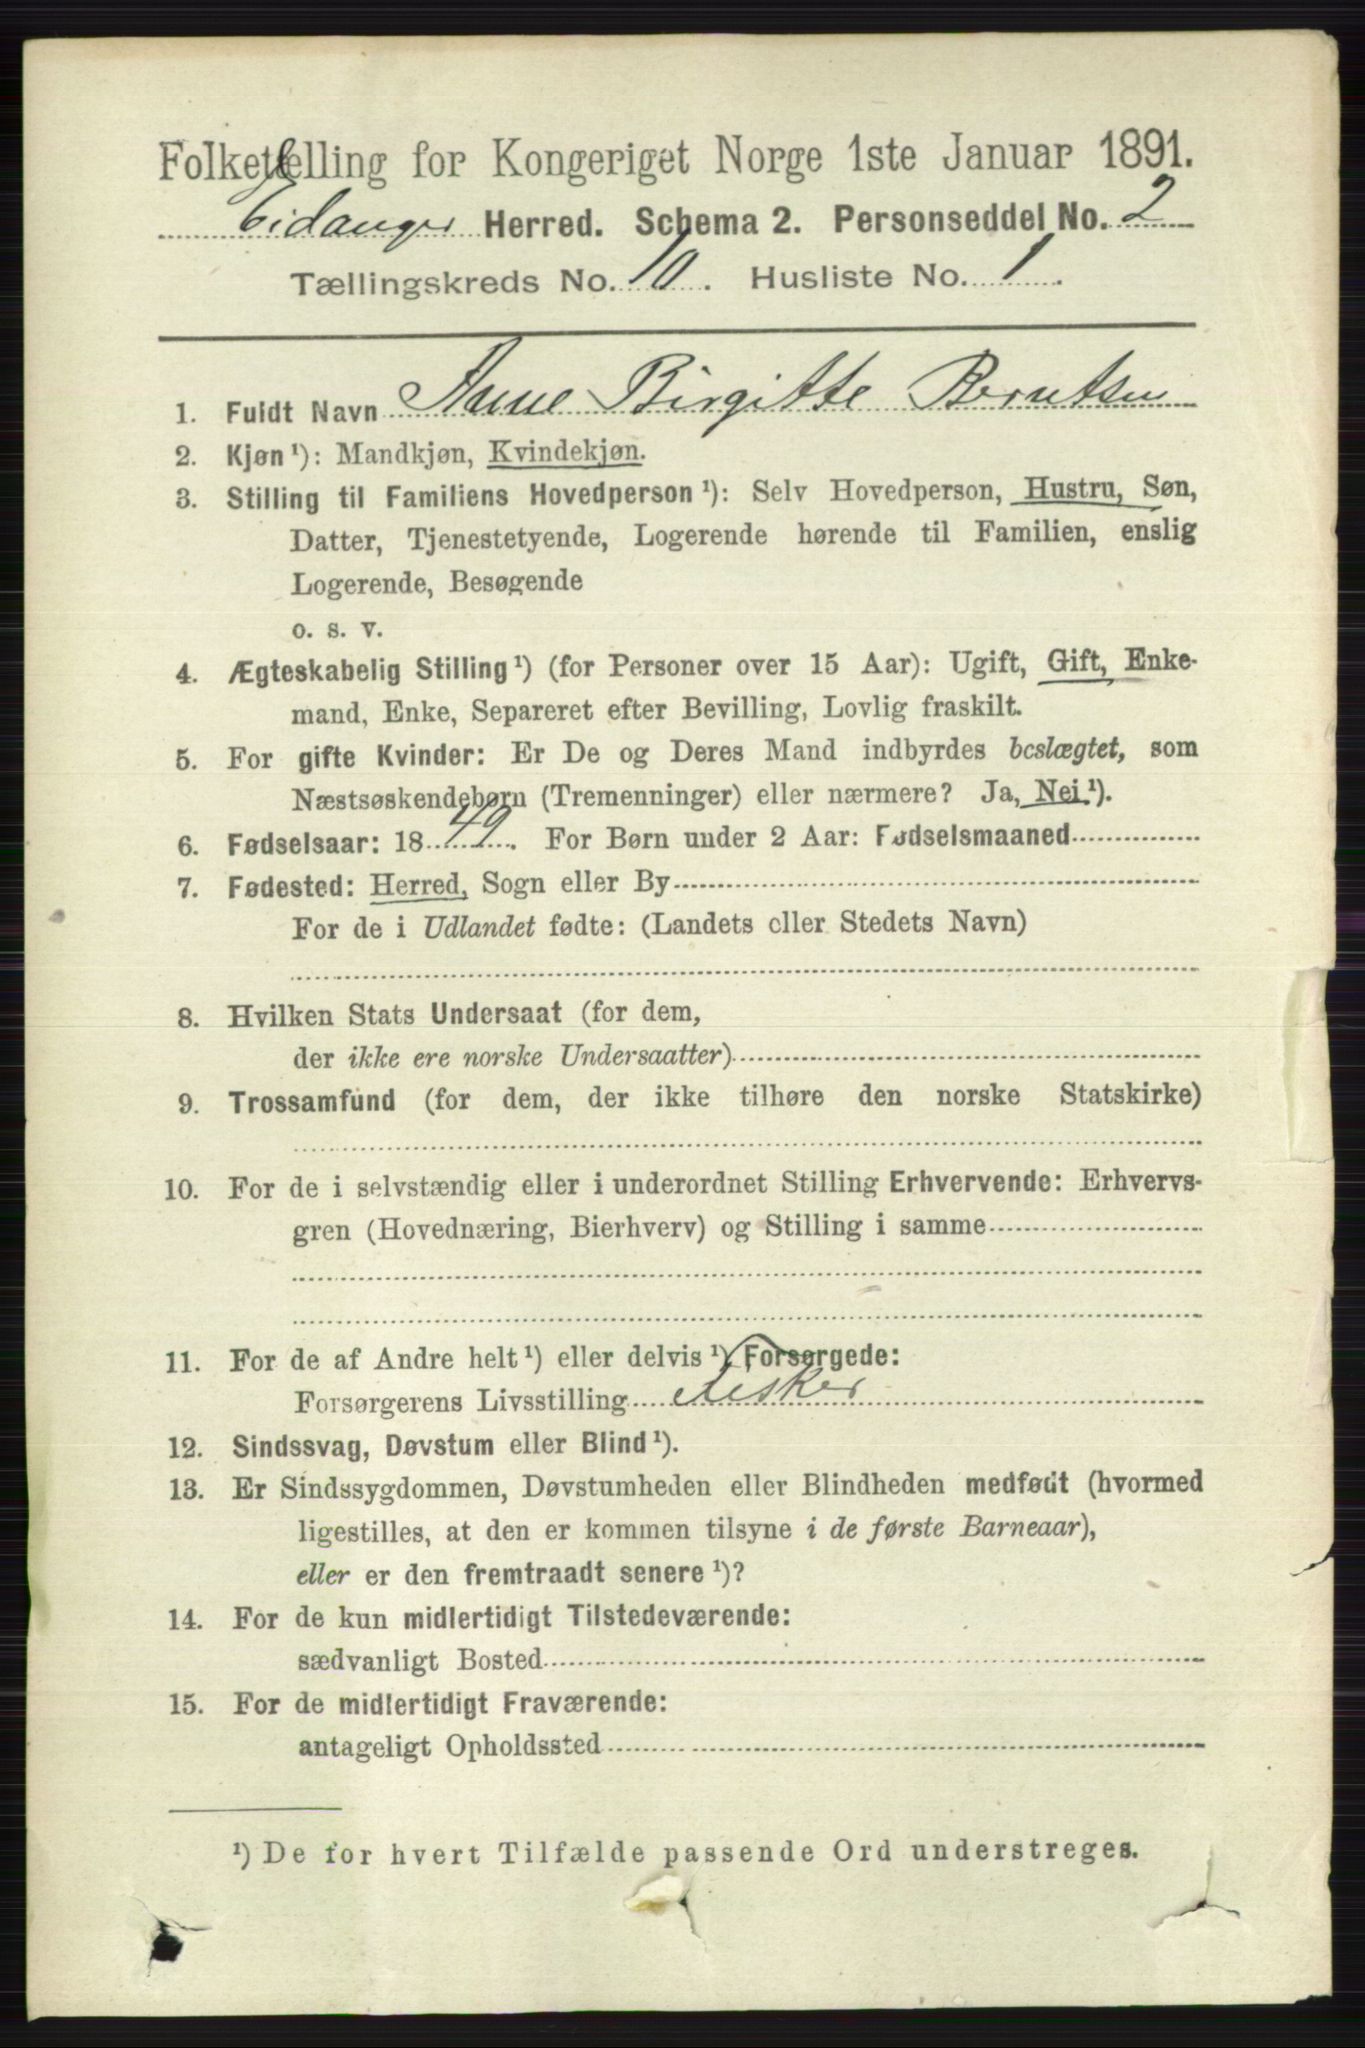 Folketælling for Kongeriget Norge 1ste Januar 1891.
Eidanger Herred. Schema 2. Personseddel No. 2
Tællingskreds No. 10. Husliste No. 1.
1. Fuldt Navn Anne Birgitte Berntsen
2. Kjøn ¹): Mandkjøn, Kvindekjøn.
3. Stilling til Familiens Hovedperson ¹): Selv Hovedperson, Hustru, Søn,
Datter, Tjenestetyende, Logerende hørende til Familien, enslig
Logerende, Besøgende
o. s. v.
4. Ægteskabelig Stilling ¹) (for Personer over 15 Aar): Ugift, Gift, Enke-
mand, Enke, Separeret efter Bevilling, Lovlig fraskilt.
5. For gifte Kvinder: Er De og Deres Mand indbyrdes beslægtet, som
Næstsøskendebørn (Tremenninger) eller nærmere? Ja, Nei ¹).
6. Fødselsaar: 1849. For Børn under 2 Aar: Fødselsmaaned
7. Fødested: Herred, Sogn eller By
For de i Udlandet fødte: (Landets eller Stedets Navn)
8. Hvilken Stats Undersaat (for dem,
der ikke ere norske Undersaatter)
9. Trossamfund (for dem, der ikke tilhøre den norske Statskirke)
10. For de i selvstændig eller i underordnet Stilling Erhvervende: Erhvervs-
gren (Hovednæring, Bierhverv) og Stilling i samme
11. For de af Andre helt ¹) eller delvis ¹) Forsørgede:
Forsørgerens Livsstilling
12. Sindssvag, Døvstum eller Blind ¹).
13. Er Sindssygdommen, Døvstumheden eller Blindheden medfødt (hvormed
ligestilles, at den er kommen tilsyne i de første Barneaar),
eller er den fremtraadt senere ¹)?
14. For de kun midlertidigt Tilstedeværende:
sædvanligt Bosted
15. For de midlertidigt Fraværende:
antageligt Opholdssted
¹) De for hvert Tilfælde passende Ord understreges.